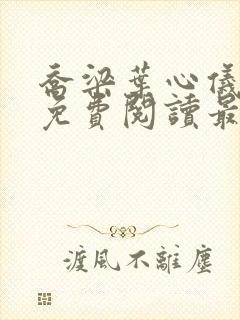 喬梁葉心儀
免費閱讀最
渡風不離塵